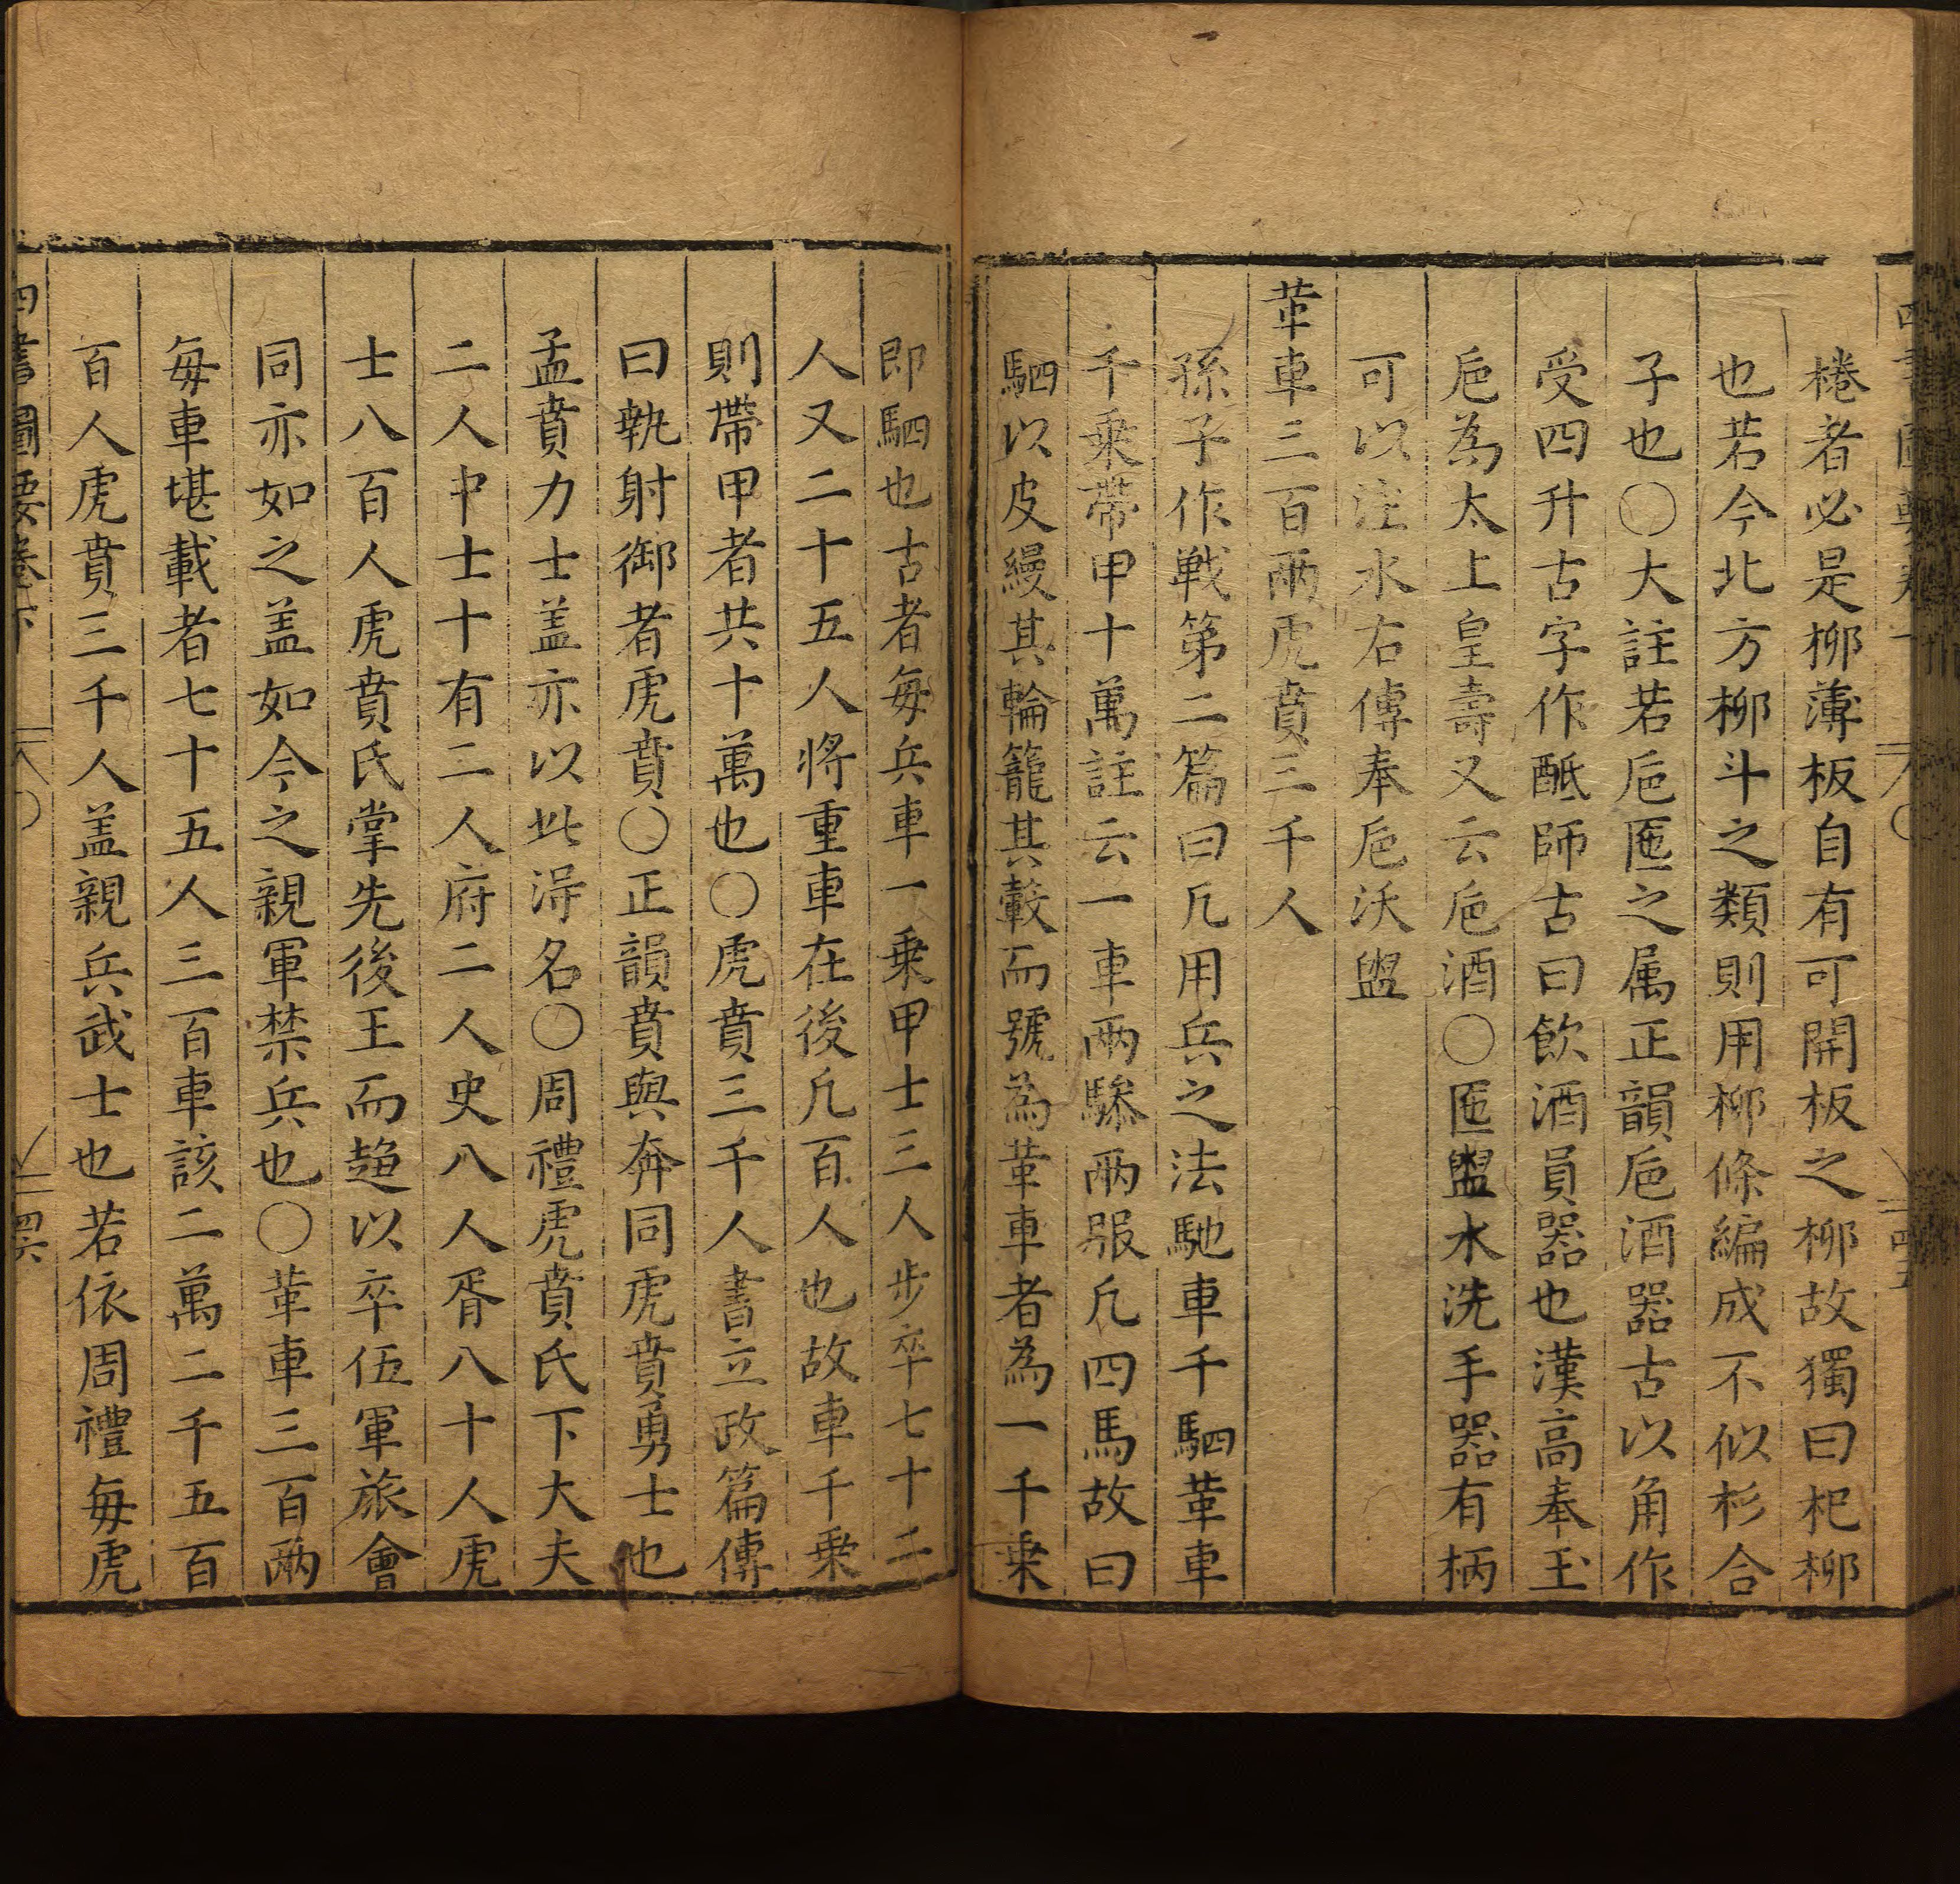 棬者必是柳薄板自有可開板之柳故獨曰杞柳
也若今北方柳斗之類則用柳條編成不似杉合
子也○大註若巵匜之属正韻巵酒器古以角作
受四升古字作䣯師古曰飲酒員器也漢高奉玉
巵為太上皇壽又云巵酒○匜盥水洗手器有柄
可以注水右傳奉巵沃盥
革車三百兩虎賁三千人
孫子作戰第二篇曰凡用兵之法馳車千駟革車
千乗帶甲十萬註云一車兩驂兩服凡四馬故曰
駟以皮縵其輪籠其轂而號為革車者為一千乗
即駟也古者每兵車一乗甲士三人步卒七十二
人又二十五人將重車在後凡百人也故車千乗
則帶甲者共十萬也○虎賁三千人書立政篇傳
曰執射御者虎賁○正韻賁與奔同虎賁勇士也
孟賁力士盖亦以此得名○周禮虎賁氏下大夫
二人中士十有二人府二人史八人胥八十人虎
士八百人虎賁氏掌先後王而趨以卒伍軍旅會
同亦如之盖如今之親軍禁兵也○革車三百兩
每車堪載者七十五人三百車該二萬二千五百
百人虎賁三千人盖親兵武士也若依周禮每虎
四書圖要卷下 四六